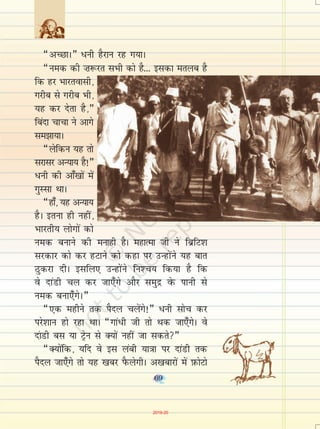 “अच्छा।” धनी हैरान रह गया।
“नमक की ज़रूरत सभी को है... इसका मतलब है
कि हर भारतवासी,
गरीब से गरीब भी,
यह कर देता है,”
बिंदा चाचा ने आगे
समझाया।
“लेकिन यह तो
सरासर अन्याय है!”
धनी की आँखों में
गुस्सा था।
“हाँ, यह अन्याय
है। इतना ही नहीं,
भारतीय लोगों को
नमक बनाने की मनाही है। महात्मा जी ने ब्रिटिश
सरकार को कर हटाने को कहा पर उन्होंने यह बात
ठुकरा दी। इसलिए उन्होंने निश्चय किया है कि
वे दांडी चल कर जाएँगे और समुद्र के पानी से
नमक बनाएँगे।”
“एक महीने तक पैदल चलेंगे!” धनी सोच कर
परेशान हो रहा था। “गांधी जी तो थक जाएँगे। वे
दांडी बस या ट्रेन से क्यों नहीं जा सकते?”
“क्योंकि, यदि वे इस लंबी यात्रा पर दांडी तक
पैदल जाएँगे तो यह खबर फैलेगी। अखबारों में फ़ोटो
2019-20